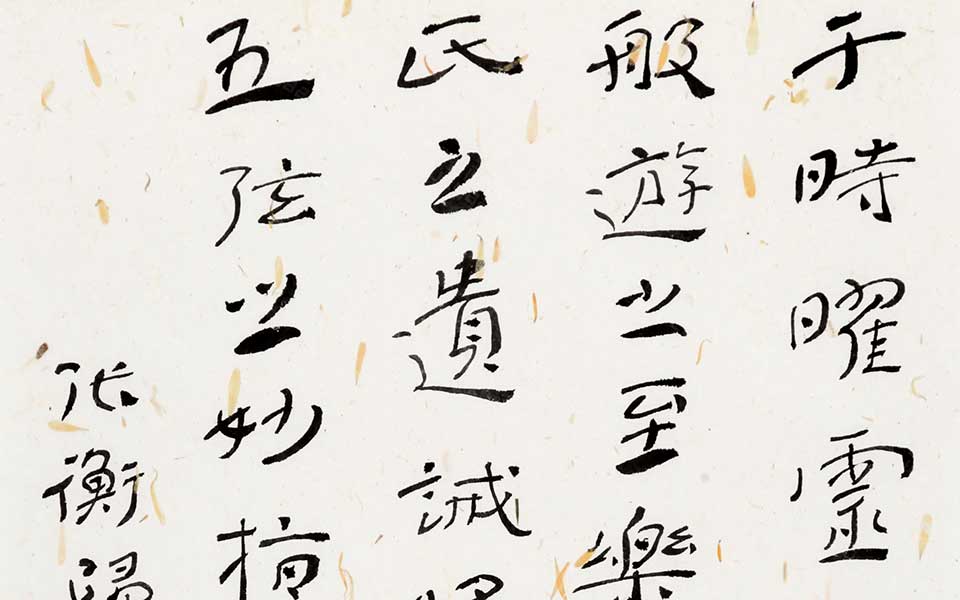 于時曜靈
般遊之至樂
氏之遺誡將
五弦之妙指
張衡歸